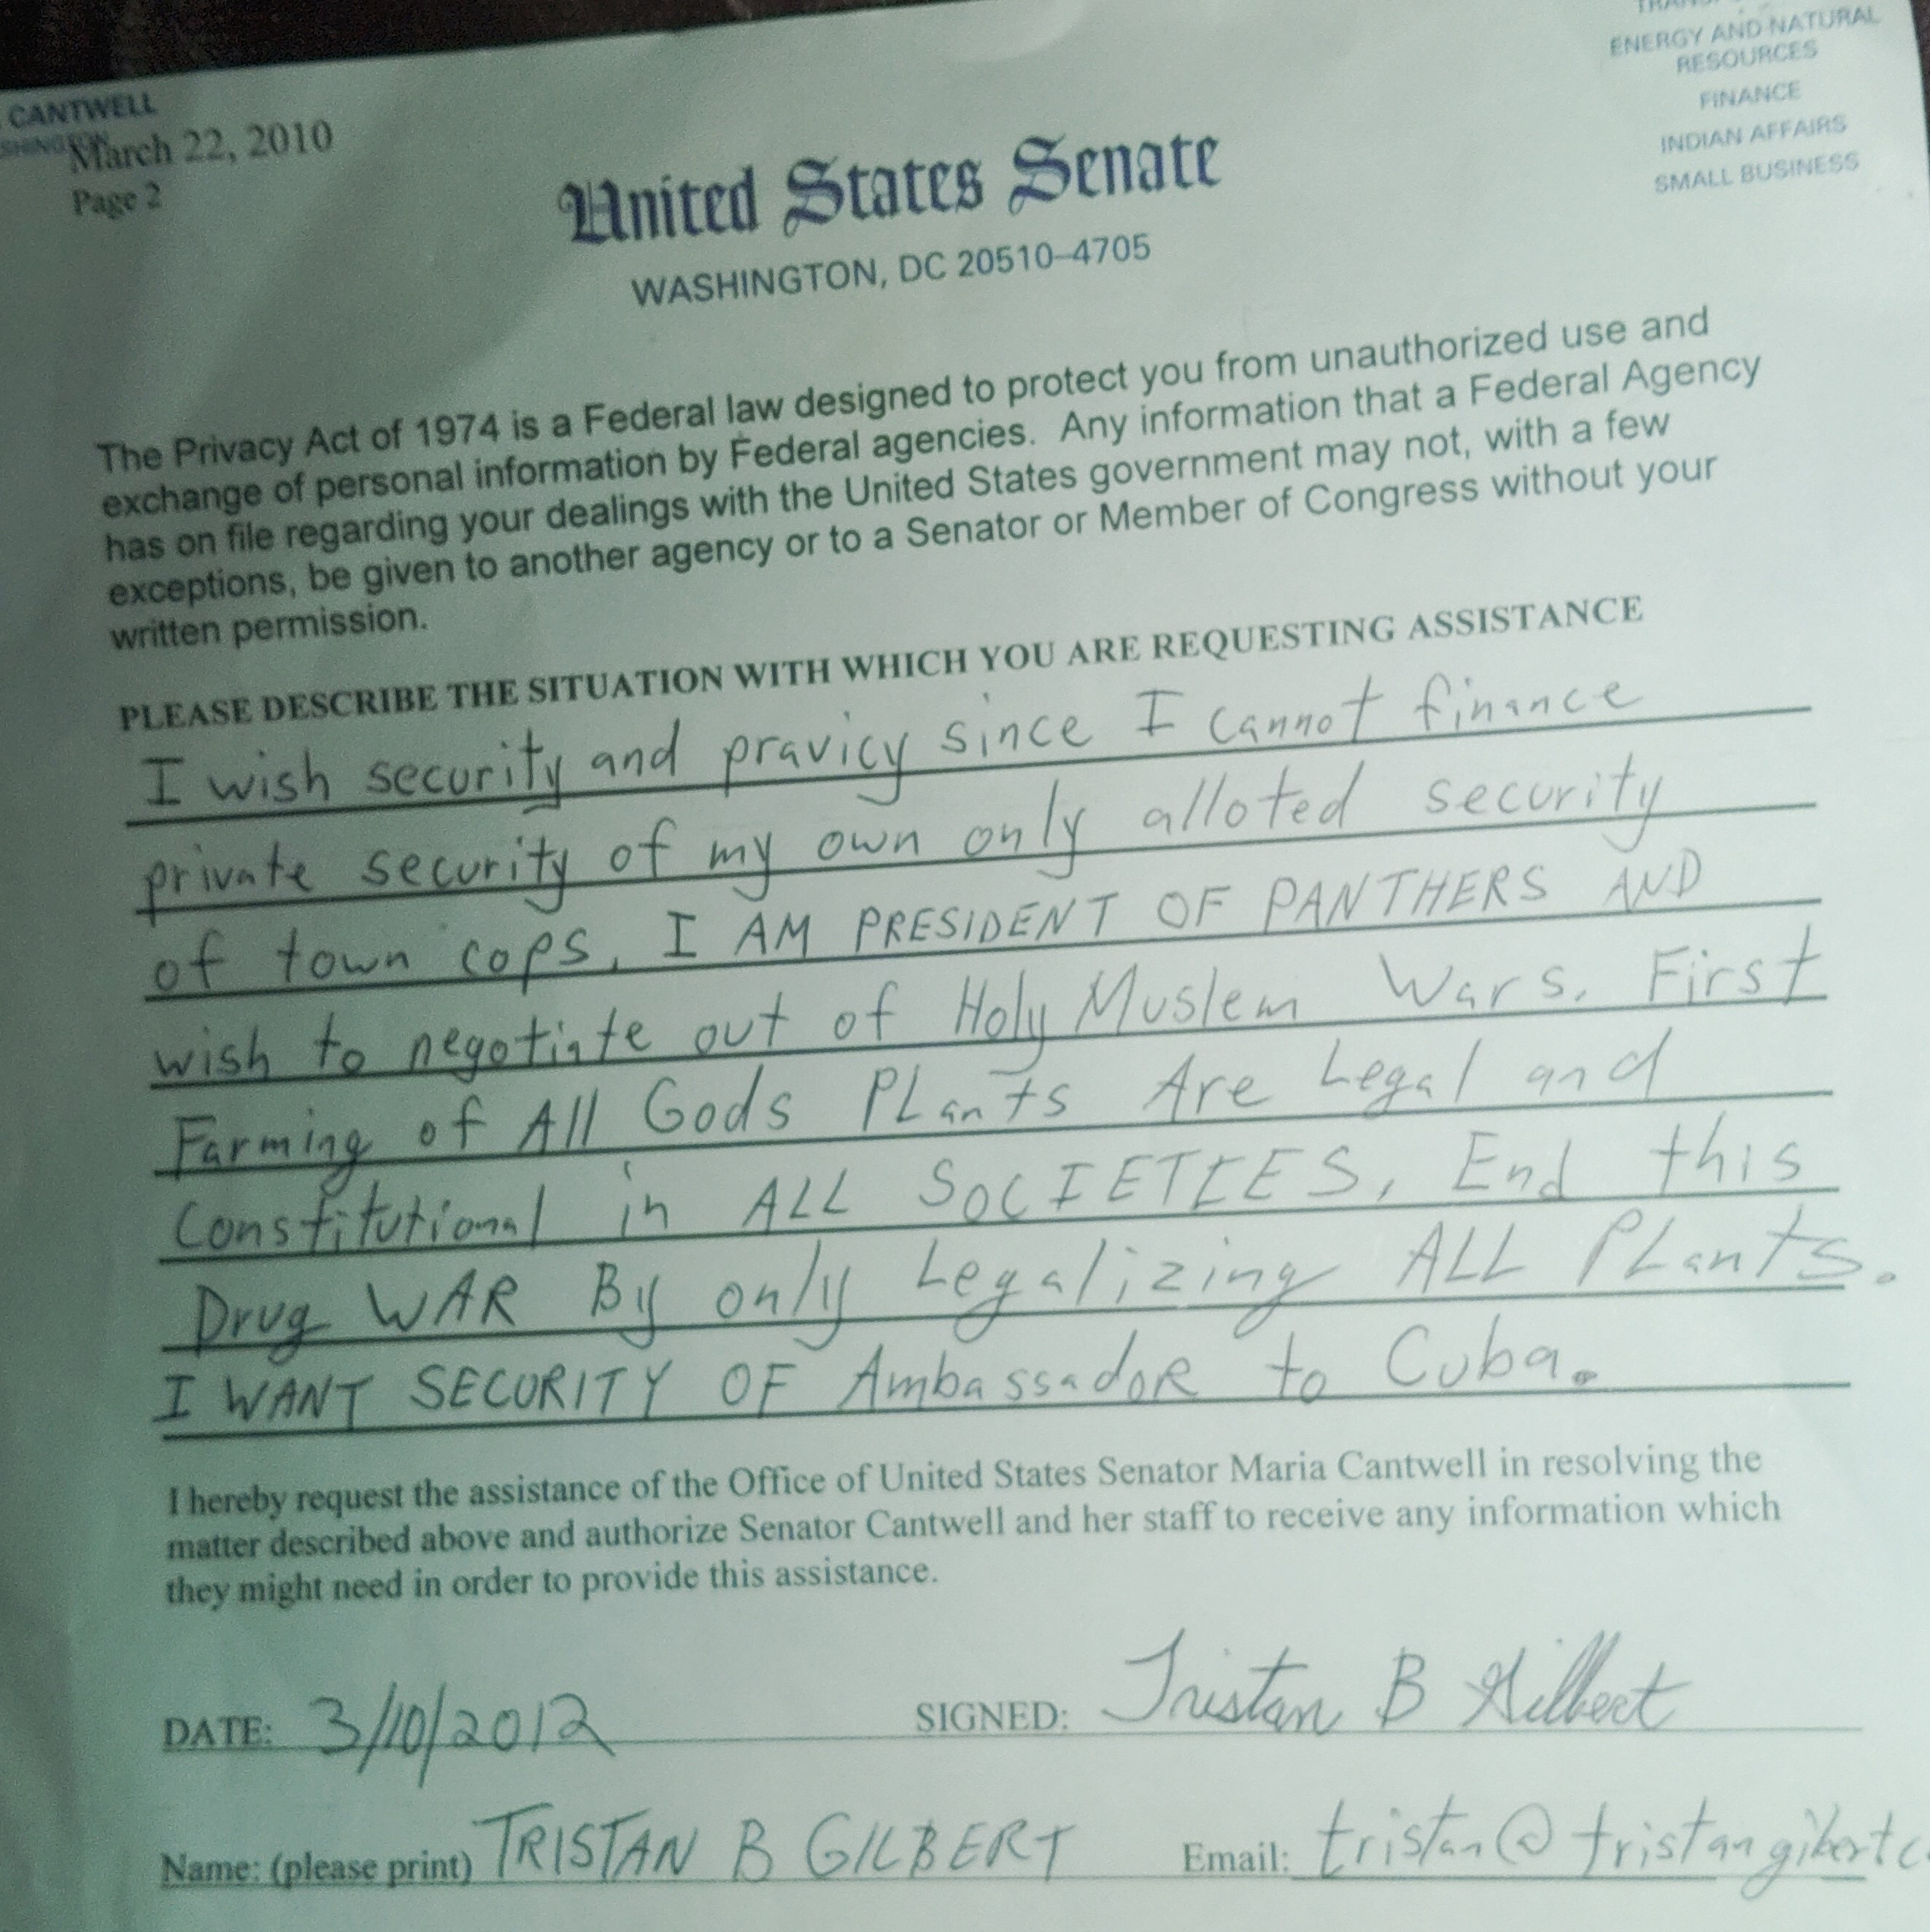 CANTWELL
March 22, 2010
Page 2
ENERGY AND NATURAL
RESOURCES
FINANCE
INDIAN AFFAIRS
SMALL BUSINESS
United States Senate
WASHINGTON, DC 20510–4705
The Privacy Act of 1974 is a Federal law designed to protect you from unauthorized use and
exchange of personal information by Federal agencies. Any information that a Federal Agency
has on file regarding your dealings with the United States government may not, with a few
exceptions, be given to another agency or to a Senator or Member of Congress without your
written permission.
PLEASE DESCRIBE THE SITUATION WITH WHICH YOU ARE REQUESTING ASSISTANCE
I wish security and pravicy since I cannot finance
private security of my own only alloted security
of town cops. I AM PRESIDENT OF PANTHERS AND
wish to negotiate out of Holy Muslem Wars. First
Farming of All Gods PLants Are Legal and
Constitutional in ALL SOCIETIES, End this
Drug WAR By only Legalizing ALL PLants.
I WANT SECURITY OF AmbassadoR to Cuba.
I hereby request the assistance of the Office of United States Senator Maria Cantwell in resolving the
matter described above and authorize Senator Cantwell and her staff to receive any information which
they might need in order to provide this assistance.
DATE: 3/10/2012 SIGNED: Tristan B Gilbert
Name: (please print) TRISTAN B GILBERT Email: tristan@tristangilbertc